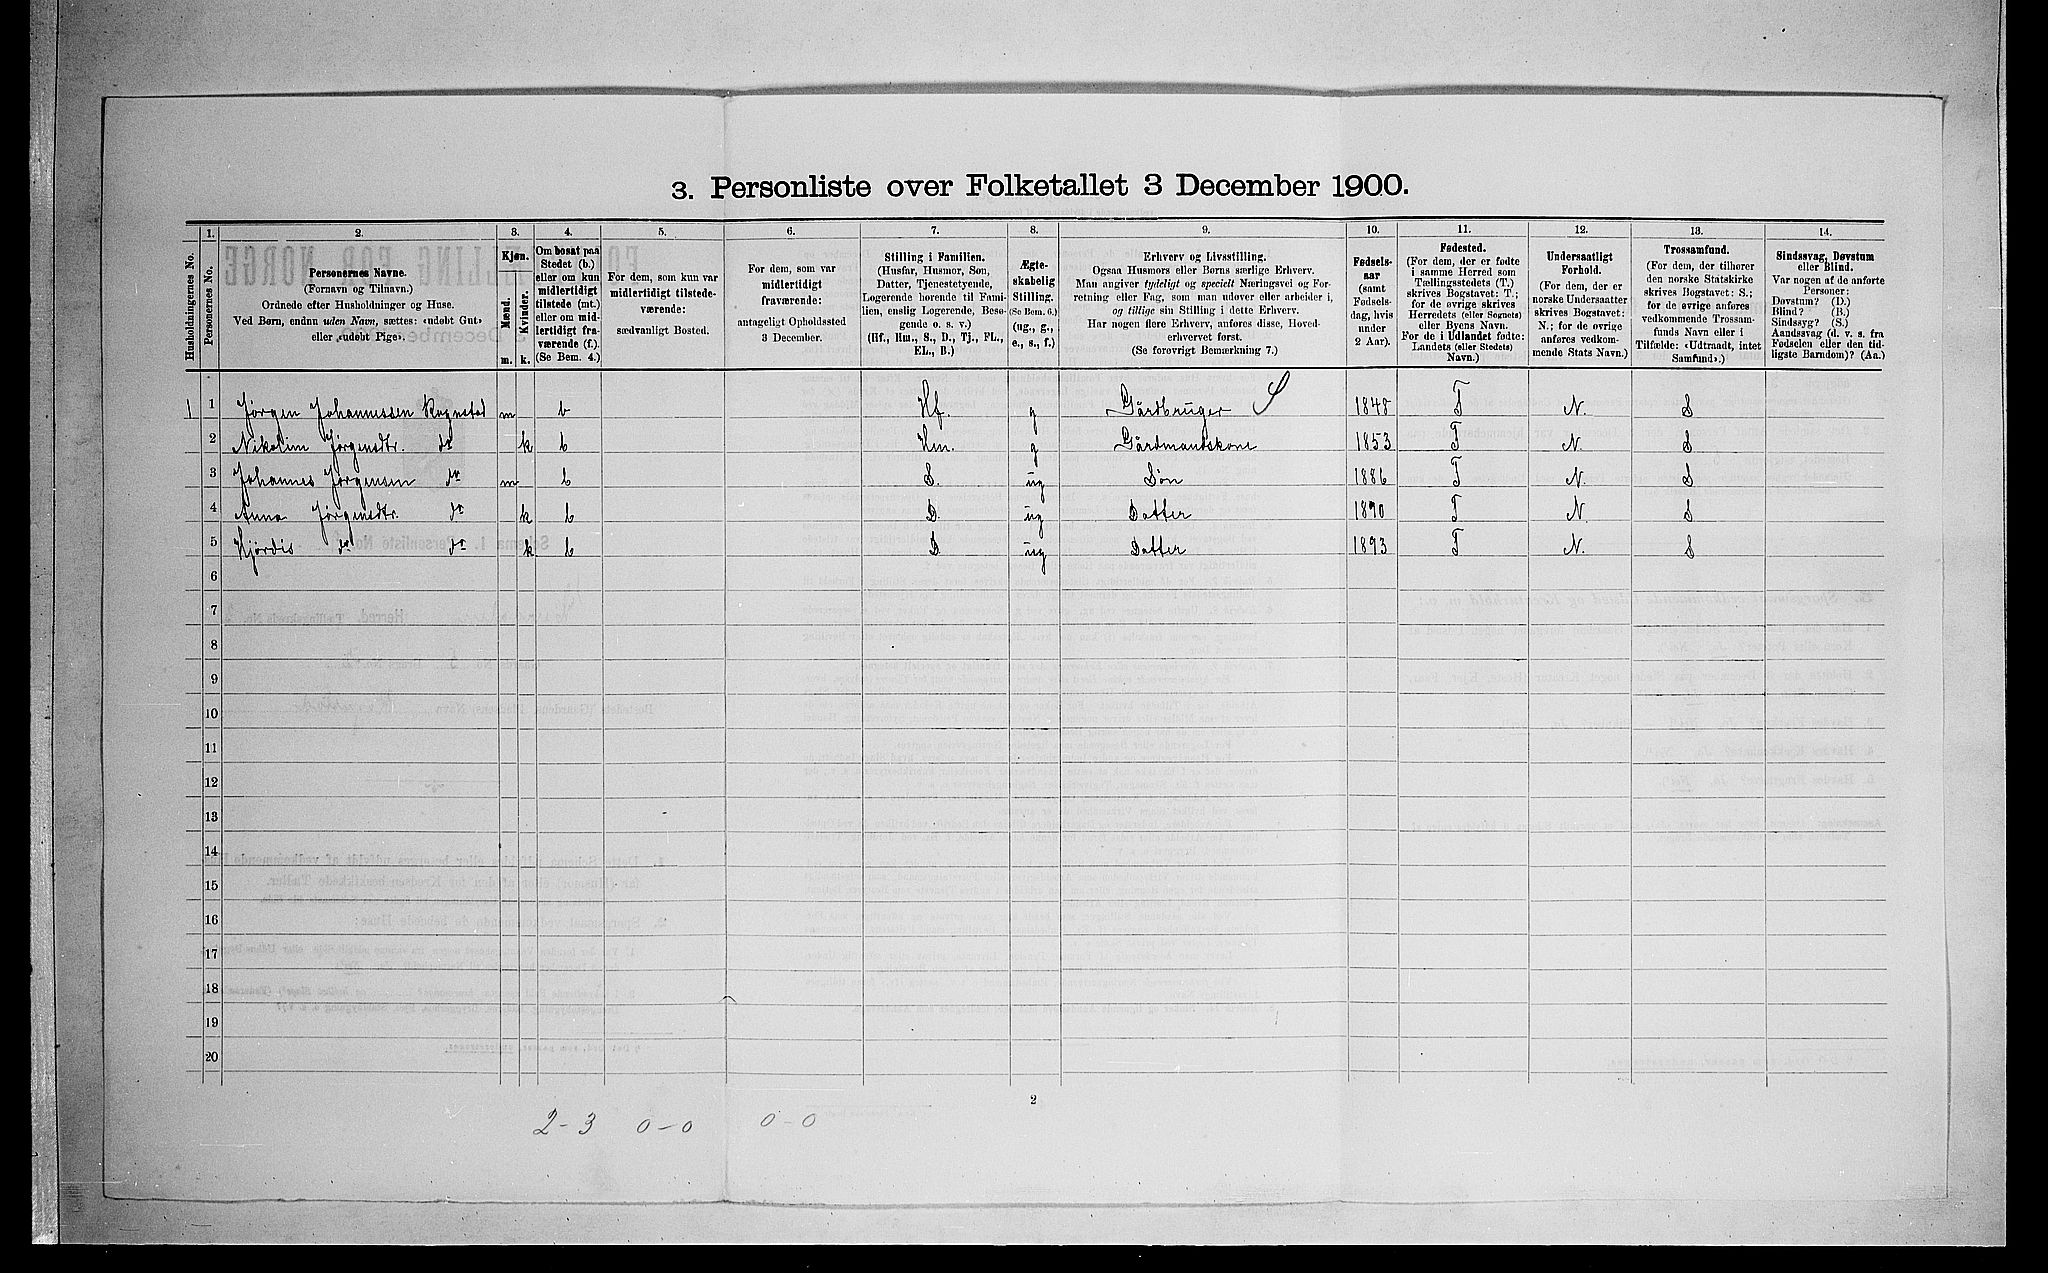 3. Personliste over Folketallet 3 December 1900.
Husholdningernes No.
1.
Personernes No.
2.
Personernes Navne.
(Fornavn og Tilnavn.)
Ordnede efter Husholdninger og Huse.
Ved Børn, endnu uden Navn, sættes: «udøbt Gut»
eller «udøbt Pige».
3.
Kjøn.
Mænd.
m.
Kvinder.
k.
4.
Om bosat paa
Stedet (b.)
eller om kun
midlertidigt
tilstede (mt.)
eller om mid-
lertidigt fra-
værende (f.).
(Se Bem. 4.)
5.
For dem, som kun var
midlertidigt tilstede-
værende:
sædvanligt Bosted.
6.
For dem, som var
midlertidigt
fraværende:
antageligt Opholdssted
3 December.
7.
Stilling i Familien.
(Husfar, Husmor, Søn,
Datter, Tjenestetyende,
Logerende hørende til Fami-
lien, enslig Logerende, Besø-
gende o. s. v.)
(Hf., Hm., S., D., Tj., FL.,
EL., B.)
8.
Ægte-
skabelig
Stilling.
(Se Bem. 6.)
(ug., g.,
e., s., f.)
9.
Erhverv og Livsstilling.
Ogsaa Husmors eller Børns særlige Erhverv.
Man angiver tydeligt og specielt Næringsvei og For-
retning eller Fag, som man udøver eller arbeider i,
og tillige sin Stilling i dette Erhverv.
Har nogen flere Erhverv, anføres disse, Hoved-
erhvervet først.
(Se forøvrigt Bemærkning 7.)
10.
Fødsels-
aar
(samt
Fødsels-
dag, hvis
under
2 Aar).
11.
Fødested.
(For dem, der er fødte
i samme Herred som
Tællingsstedets (T.)
skrives Bogstavet: T.;
for de øvrige skrives
Herredets (eller Sognets)
eller Byens Navn.
For de i Udlandet fødte:
Landets (eller Stedets)
Navn.)
12.
Undersaatligt
Forhold.
(For dem, der er
norske Undersaatter
skrives Bogstavet:
N.; for de øvrige
anføres vedkom-
mende Stats Navn.)
13.
Trossamfund.
(For dem, der tilhører
den norske Statskirke
skrives Bogstavet: S.;
for de øvrige anføres
vedkommende Trossam-
funds Navn eller i
Tilfælde: «Udtraadt, intet
Samfund».)
14.
Sindssvag, Døvstum
eller Blind.
Var nogen af de anførte
Personer:
Døvstum? (D.)
Blind? (B.)
Sindssyg? (S.)
Aandssvag (d. v. s. fra
Fødselen eller den tid-
ligste Barndom)? (Aa.)
1 1 Jørgen Johannessen Rognstad m b Hf. g Gårdbruger S 1848 T N. S
2 Nikolim Jørgensdtr. do k b Hm. g Gårdmandskone 1853 T N. S
3 Johannes Jørgensen do m b S. ug Søn 1886 T N. S
4 Anna Jørgensdtr. do k b D. ug Datter 1890 T N. S
5 Hjördis do do k b D ug Datter 1893 T N. S
6
7
8
9
10
11
12
13
14
15
16
17
18
19
20
2
2-3 0-0 0-0